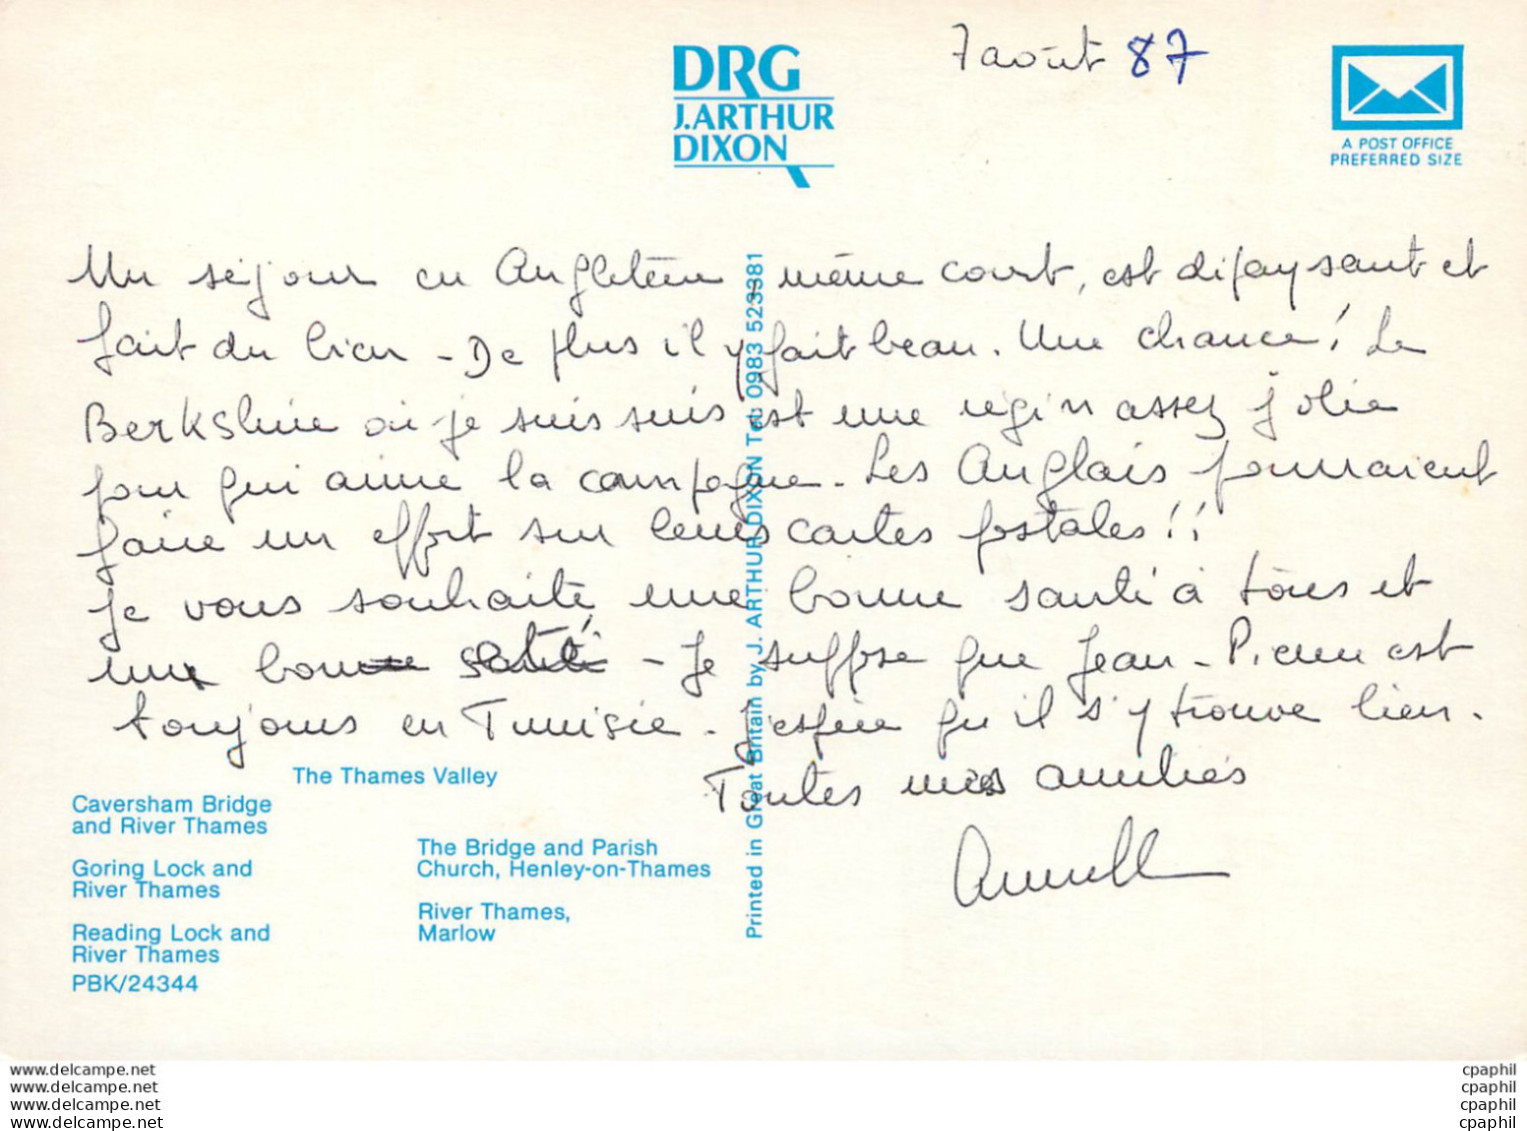 7 août 87
DRG
J.ARTHUR
DIXON
A POST OFFICE
PREFERRED SIZE
Un séjour en Angleterre, même court, est dépaysant et
fait du bien - De plus il y fait beau. Une chance! Le
Berkshire où je suis suis est une région assez jolie
pour qui aime la campagne. Les Anglais pourraient
faire un effort sur leurs cartes postales!!
Je vous souhaite une bonne santé à tous et
une bonne santé - Je suppose que Jean-Pierre est
toujours en Tunisie. J'espère qu'il s'y trouve bien.
Toutes mes amitiés
The Thames Valley
Caversham Bridge
and River Thames
Goring Lock and
River Thames
Reading Lock and
River Thames
PBK/24344
The Bridge and Parish
Church, Henley-on-Thames
River Thames,
Marlow
Printed in Great Britain by J. ARTHUR DIXON Tel: 0983 523381
www.delcampe.net
www.delcampe.net
www.delcampe.net
www.delcampe.net
cpaphil
cpaphil
cpaphil
cpaphil